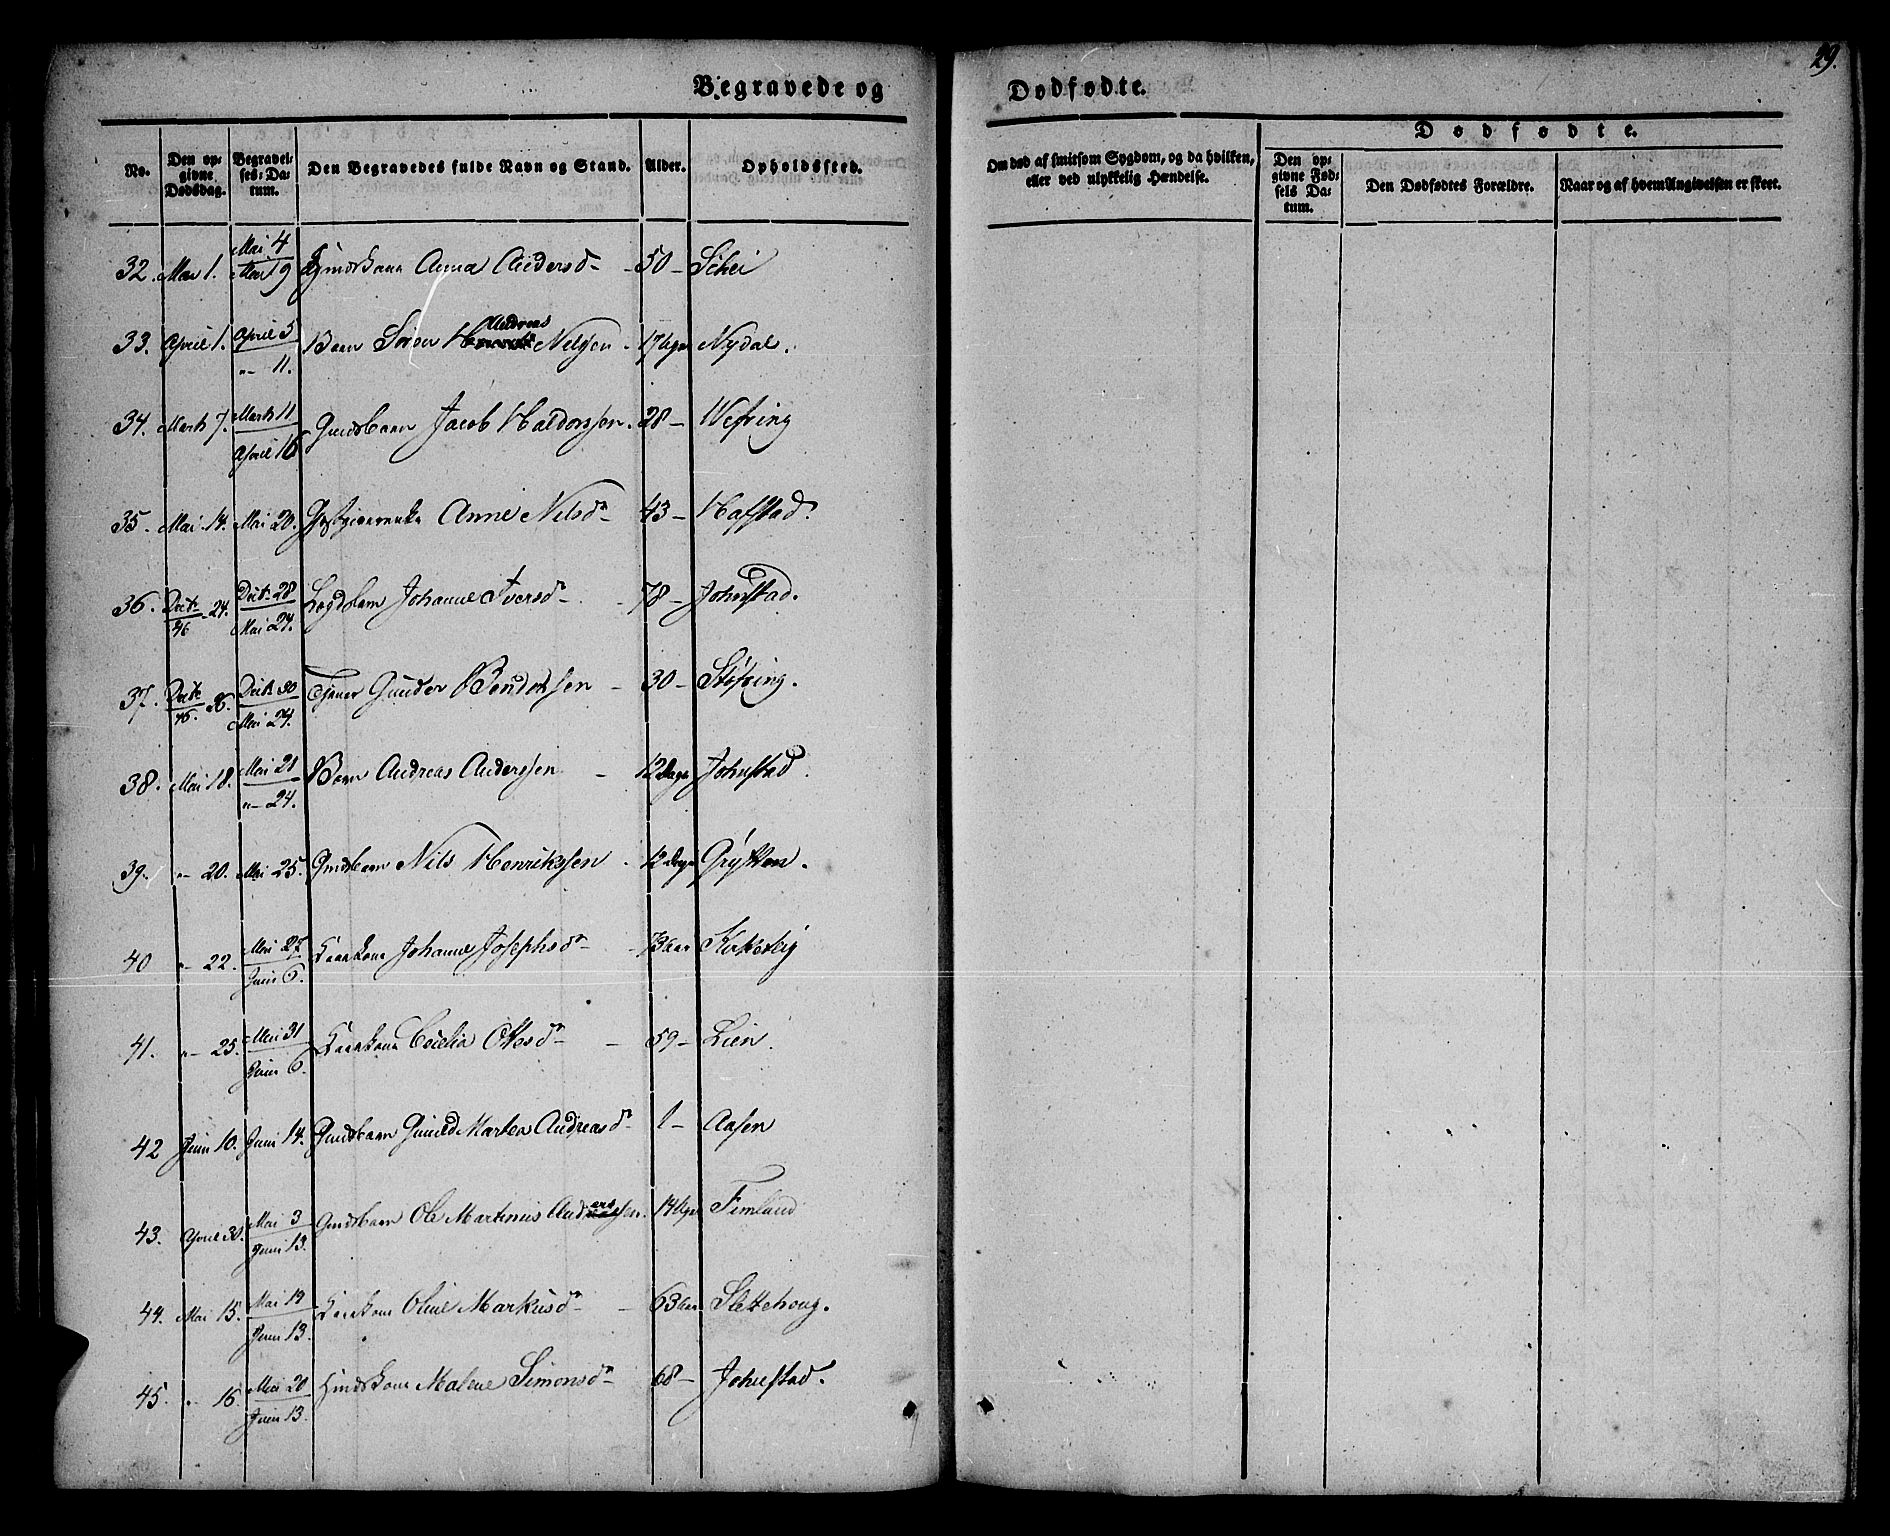 29.
Begravede og Dødfødte.
No. Den opgivne Dødsdag. Begravelses-Datum. Den Begravedes fulde Navn og Stand. Alder. Opholdssted. Om død af smitsom Sygdom, og da hvilken, eller ved ulykkelig Hændelse. Dødfødte. Den opgivne Fødsels Datum. Den Dødfødtes Forældre. Naar og af hvem Angivelsen er skeet.
32. Mai 1. Mai 4 Mai 9 Anna Andersd 50 - Schei
33. April 1. April 5 " 11. Barn Søren Andreas Nilsen. 17 Nydal.
34. Marts 7. Marts 11 April 16 Jacob Haldorssen. 28 - Wefring
35. Mai 14. Mai 20. Anne Nilsd 43 - Hafstad.
36. Decbr 24. 46 Decbr 28 Mai 24. Lægdslem Johanne Iversd 78 - Johnstad.
37. Decbr 26. Decbr 30 Mai 24. Tjener Gunder 30 - Støfring.
38. Mai 18. Mai 21 " 24. Barn Andreas Anderssen 12 Dage Johnstad.
39. " 20. Mai 25. Gmdsbarn Nils Henrikssen 12 Dage Grytten.
40 " 22. Mai 27 Juni 6. Kaarkone Johanne Josephsd 73 Aar Kirkeby
41. " 25. Mai 31 Juni 6. Kaarkone Cecilia Ottesd 59 - Lien.
42 Juni 10. Juni 14. Gmdsbarn Gunild Martea Andreasd 1 - Aasen
43. April 30. Mai 3 Juni 13. Gmdsbarn Ole Martinus Anderssen. 14 Fimland
44. Mai 15. Mai 19 Juni 13. Kaarkone Oline Markusd 63 Aar Slettehoug.
45. " 16. Mai 20 Juni 13. Malene Simonsd 68 - Johnstad.